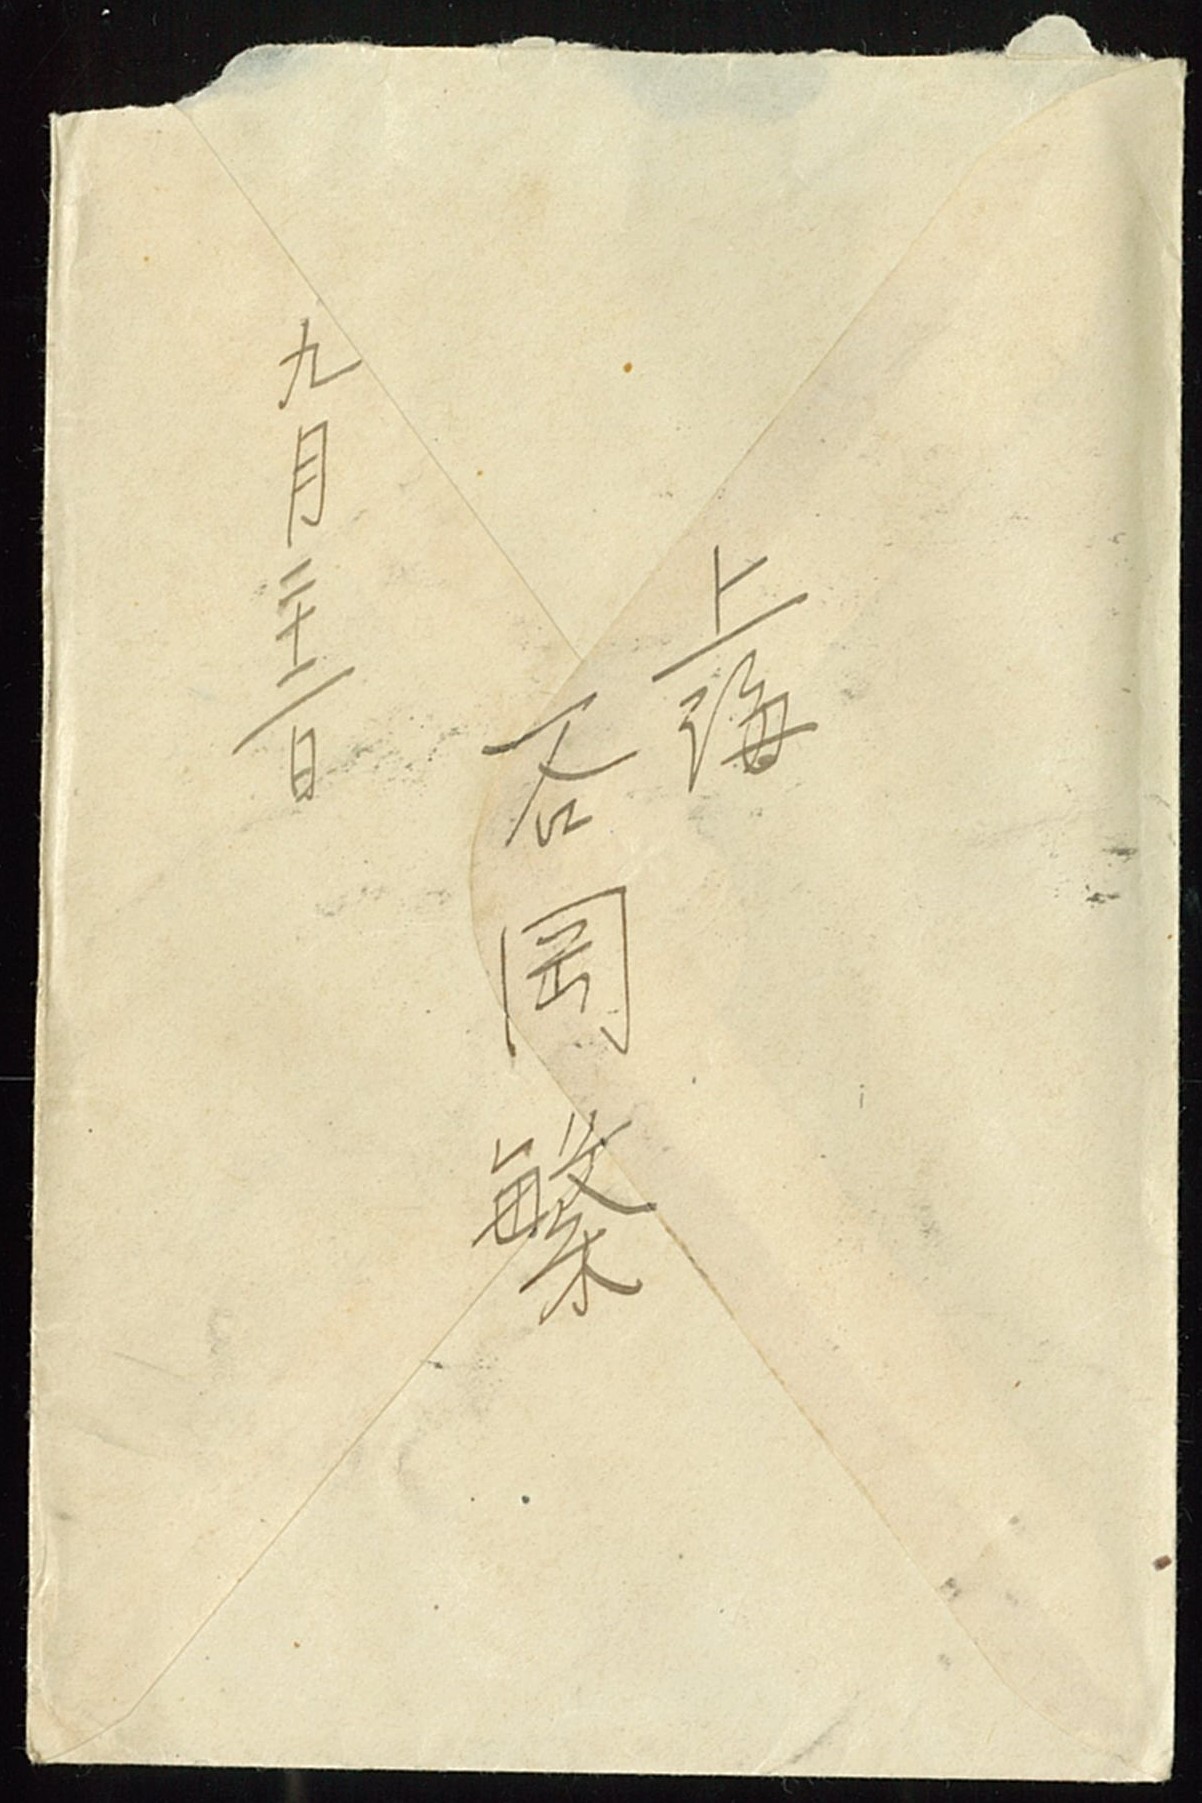 上海
岡繁
九月二十二日